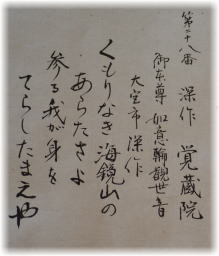 第二十八番
深作 覚蔵院
御本尊 如意輪観世音
大宮市深作
くもりなき海鏡山の
あらたさよ
参る我が身を
てらしたまえや